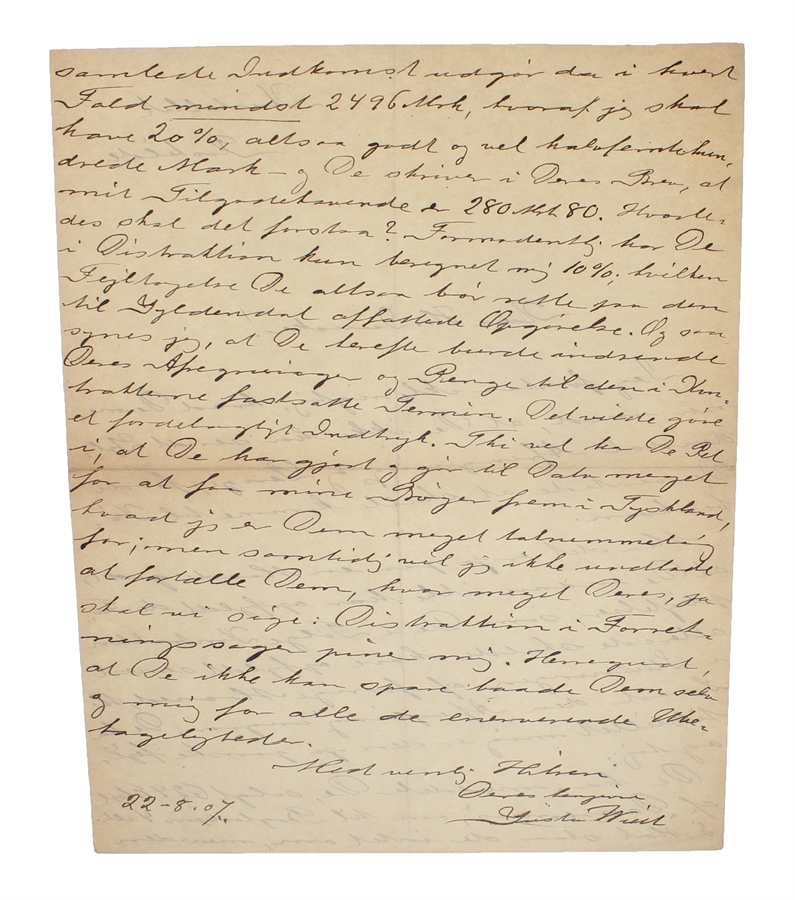 samlede Indkomst udgør da i hvert
Fald mindst 2496 Mrk, hvoraf jeg skal
have 20%, altsaa godt og vel halvfemtehun-
drede Mark – og De skriver i Deres Brev, at
mit Tilgodehavende er 280 Mrk 80. Hvorle-
des skal det forstaa? Formodentlig har De
i Distraktion kun beregnet mig 10%, hvilken
Fejltagelse De altsaa bør rette paa den
til Gyldendal affattede Opgørelse. Og saa
synes jeg, at De herefter burde indsende
Deres Afregninger og Penge til den i Kon-
trakterne fastsatte Termin. Det vilde gøre
et fordelagtigt Indtryk. Thi vel har De Ret
i, at De har gjort og gør til Dato meget
for at faa mine Bøger frem i Tyskland,
hvad jeg er Dem meget taknemmelig
for; men samtidig vil jeg ikke undlade
at fortælle Dem, hvor meget Deres, ja
skal vi sige: Distraktion i Forret-
ningssager pine mig. Herregud,
at De ikke kan spare baade Dem selv
og mig for alle de enerverende Ube-
hageligheder.
Med venlig Hilsen
Deres hengivne
22-8.07. Gustav Wied